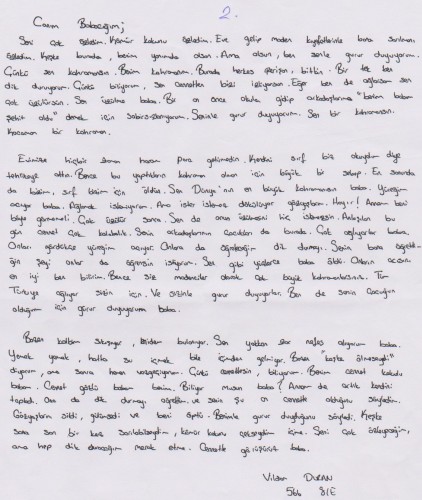 2.
Canım Babacığım;
Seni çok özledim. Kömür kokunu özledim. Eve gelip maden kıyafetlerinle bana sarılmanı
özledim. Keşke burada, benim yanımda olsan. Ama olsun, ben seninle gurur duyuyorum.
Çünkü sen kahramansın. Benim kahramanım. Burada herkes perişan, bitkin. Bir tek ben
dik duruyorum. Çünkü biliyorum, sen cennetten bizi izliyorsun. Eğer ben de ağlarsam sen
çok üzülürsün. Sen üzülme baba. Bir an önce okula gidip arkadaşlarıma "benim babam
şehit oldu" demek için sabırsızlanıyorum. Seninle gurur duyuyorum. Sen bir kahramansın.
Kocaman bir kahraman.
Evimize hiçbir zaman haram para getirmedin. Kendini sırf biz okuyalım diye
tehlikeye attın. Bence bu yaptıkların kahraman olman için büyük bir sebep. En sonunda
da bizim, sırf bizim için öldün. Sen Dünya'nın en büyük kahramanısın baba. Yüreğim
acıyor baba. Ağlamak istemiyorum. Ama ister istemez dökülüyor gözyaşlarım. Hayır! Annem beni
böyle görmemeli. Çok üzülür sonra. Sen de onun üzülmesini hiç istemezsin. Anlaşılan bu
gün cennet çok kalabalık. Senin arkadaşlarının çocukları da burada. Çok ağlıyorlar baba.
Onları gördükçe yüreğim acıyor. Onlara da öğreteceğim dik durmayı. Senin bana öğretti-
ğin şeyi onlar da öğrensin istiyorum. Sen gibi yüzlerce baba öldü. Onların acısını
en iyi ben bilirim. Bence siz madenciler olarak çok büyük kahramanlarsınız. Tüm
Türkiye ağlıyor sizin için. Ve sizinle gurur duyuyorlar. Ben de senin çocuğun
olduğum için gurur duyuyorum baba.
Bazen kalbim sıkışıyor, midem bulanıyor. Sen yokken zor nefes alıyorum baba.
Yemek yemek, hatta su içmek bile içimden gelmiyor. Bazen "keşke ölmeseydi"
diyorum, ama sonra hemen vazgeçiyorum. Çünkü cennettesin, biliyorum. Benim cennet kokulu
babam. Cennet gözlü babam benim. Biliyor musun baba? Annem de artık kendini
topladı. Ona da dik durmayı öğrettim ve senin şu an cennette olduğunu söyledim.
Gözyaşlarını sildi, gülümsedi ve beni öptü. Benimle gurur duyduğunu söyledi. Keşke
sana son bir kez sarılabilseydim, kömür kokunu çekseydim içime. Seni çok özleyeceğim,
ama hep dik duracağım merak etme. Cennette görüşürüz baba.
Vildan DURAN
566 8/E